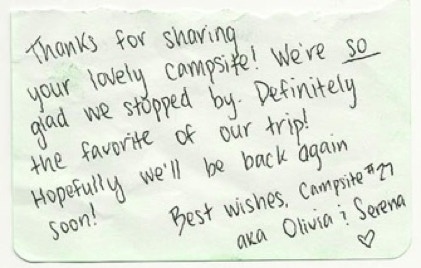 Thanks for sharing
your lovely campsite! We're so
glad we stopped by. Definitely
the favorite of our trip!
Hopefully we'll be back again
soon!
Best wishes, Campsite #27
aka Olivia & Serena
♡